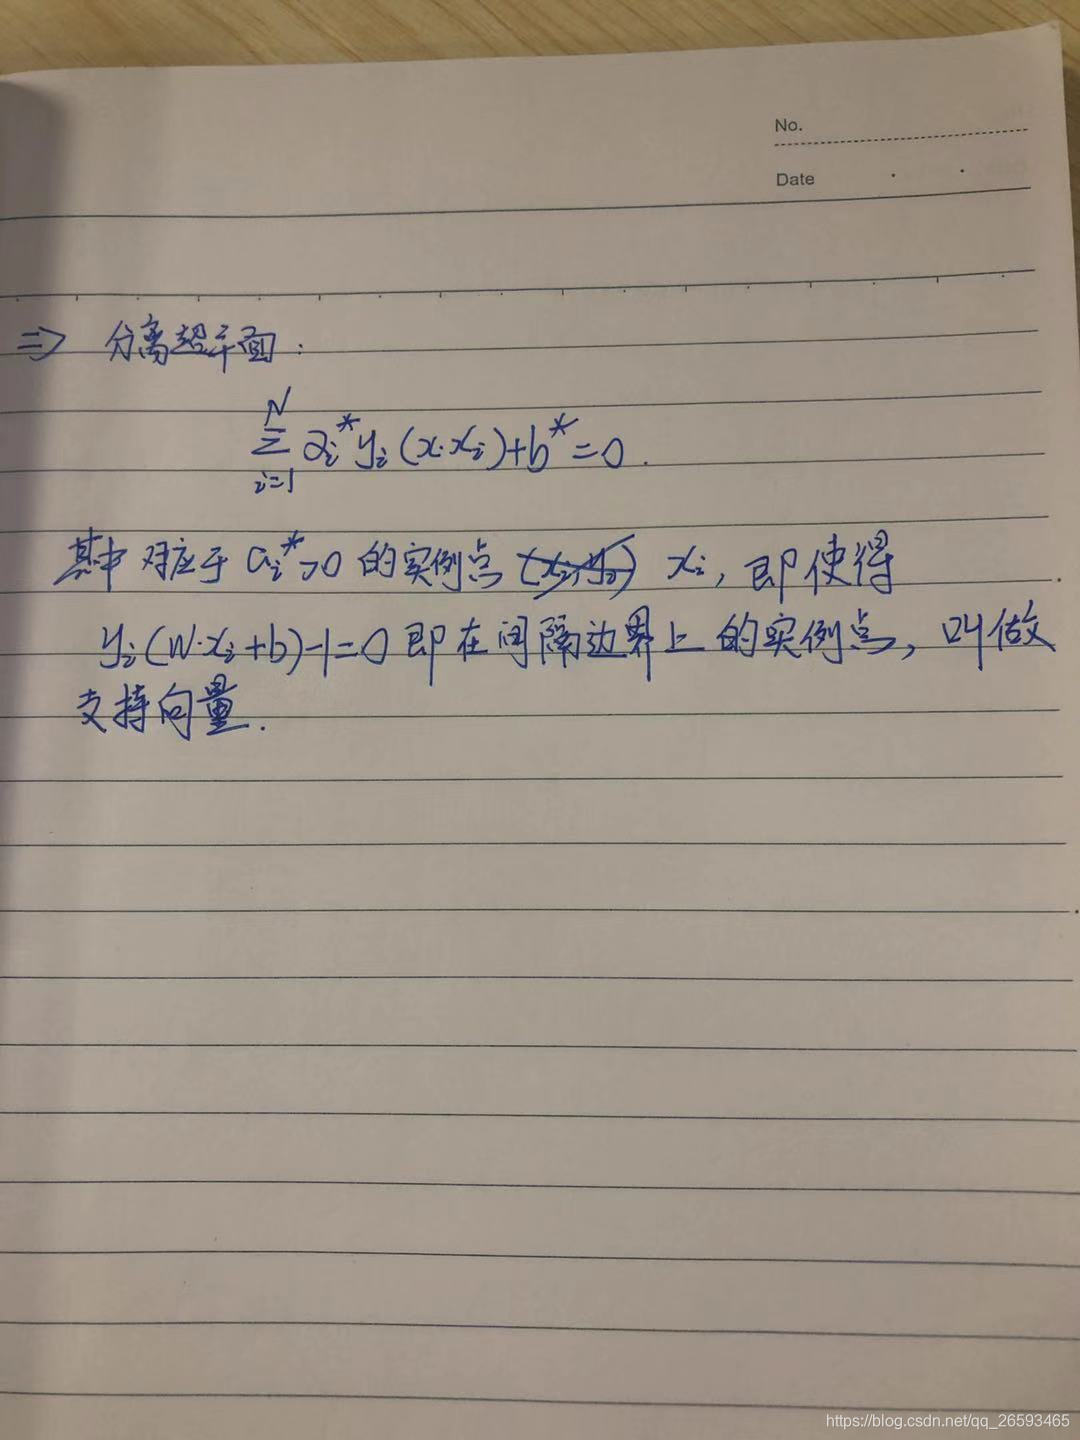 No.
Date
⇒ 分离超平面:
N
∑ αᵢ* yᵢ (x·xᵢ)+b* = 0.
i=1
其中 对应于 αᵢ*>0 的实例点 xᵢ, 即使得
yᵢ(w·xᵢ+b)-1=0 即在间隔边界上的实例点, 叫做
支持向量.
https://blog.csdn.net/qq_26593465